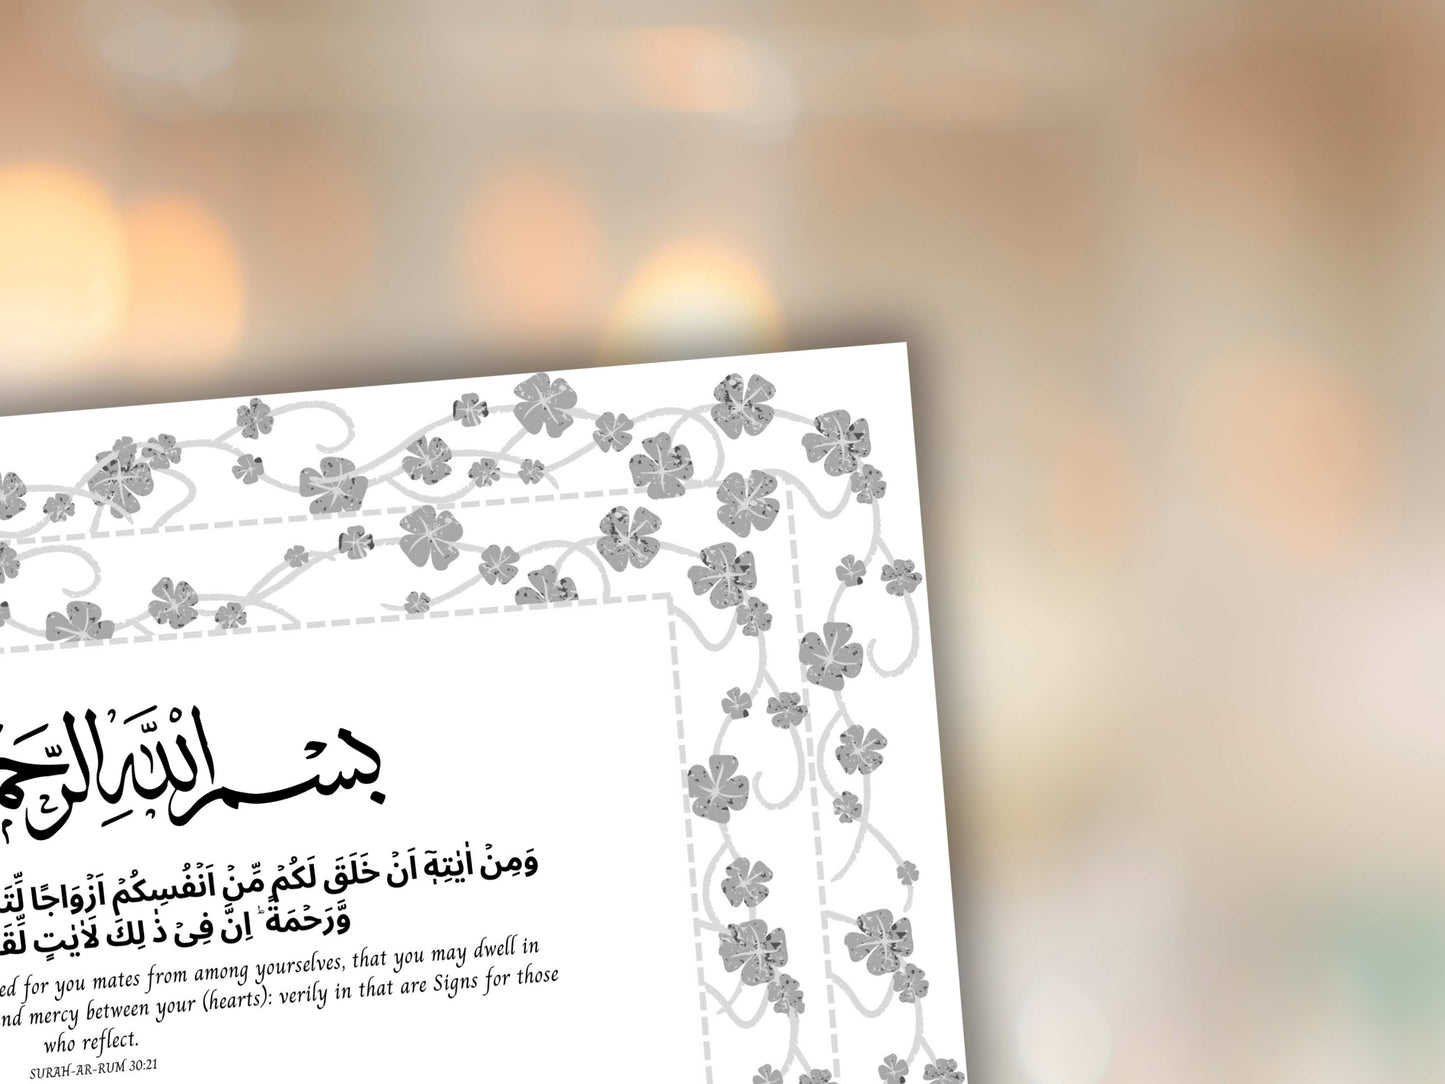 بسم الله الرحم
وَمِنۡ اٰيٰتِهٖۤ اَنۡ خَلَقَ لَكُمۡ مِّنۡ اَنۡفُسِكُمۡ اَزۡوَاجًا
وَّرَحۡمَةً ؕ اِنَّ فِىۡ ذٰ لِكَ لَاٰيٰتٍ
ed for you mates from among yourselves, that you may dwell in
nd mercy between your (hearts): verily in that are Signs for those
who reflect.
SURAH-AR-RUM 30:21